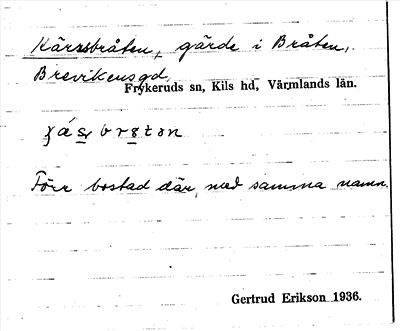 Kärrsbråten, gärde i Bråten,
Brevikensgd,
Frykeruds sn, Kils hd, Värmlands län.
Förr bostad där, med samma namn.
Gertrud Erikson 1936.